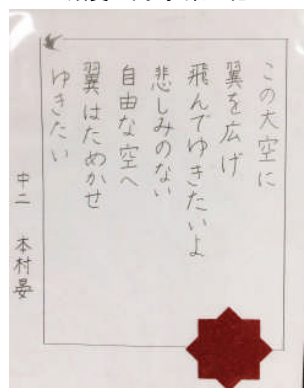 この大空に
翼を広げ
飛んでゆきたいよ
悲しみのない
自由な空へ
翼はためかせ
ゆきたい
中二 本村晏